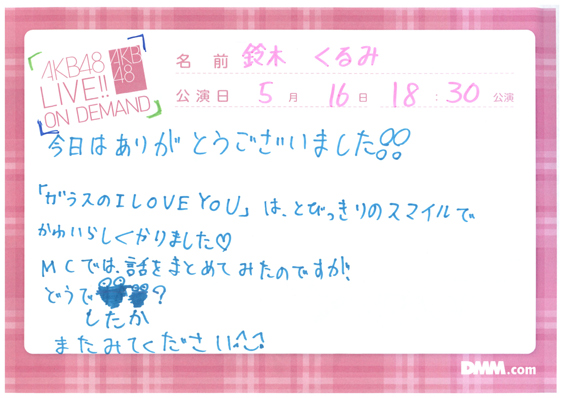 AKB48
LIVE!!
ON DEMAND
AKB
48
名前 鈴木 くるみ
公演日 5月 16日 18:30 公演
今日はありがとうございました!!
「ガラスのI LOVE YOU」は、とびっきりのスマイルで
かわいらしくかりました♡
MCでは、話をまとめてみたのですが、
どうで ?
したか
またみてください^^
DMM.com